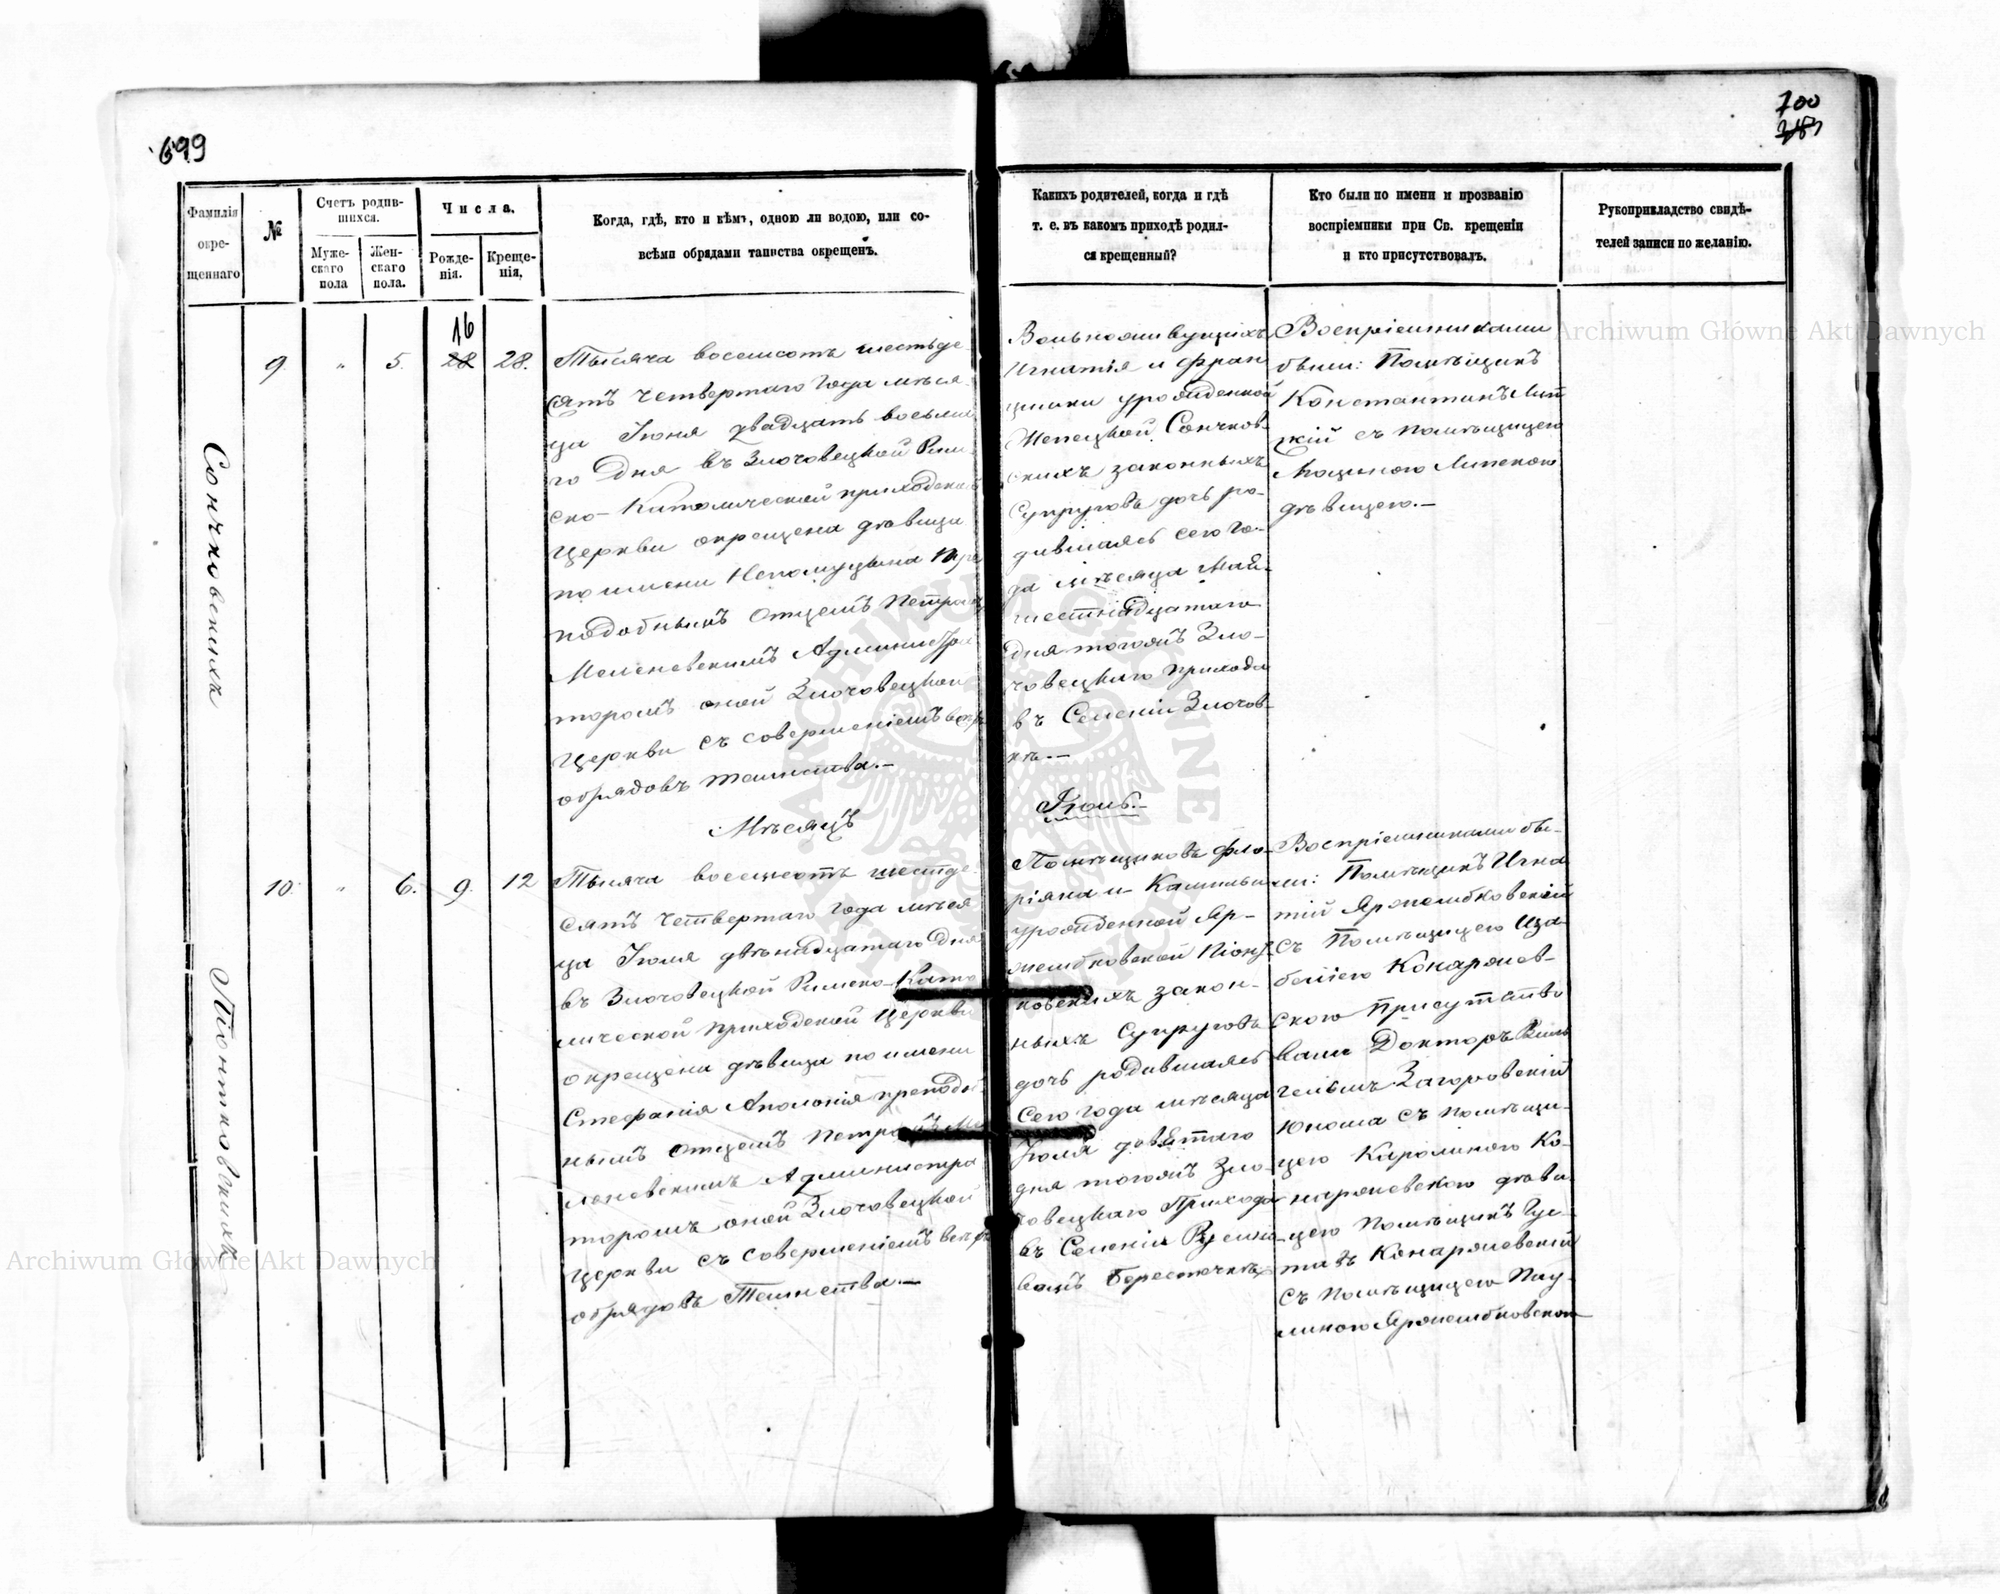 699
700
Фамилія окре-щеннаго
№
Счетъ родив-шихся.
Муже-скаго пола
Жен-скаго пола.
Числа.
Рожде-нія.
Креще-нія,
Когда, гдѣ, кто и кѣмъ, одною ли водою, или со-
всѣми обрядами таинства окрещенъ.
Какихъ родителей, когда и гдѣ
т. е. въ какомъ приходѣ родил-
ся крещенный?
Кто были по имени и прозванію
воспріемники при Св. крещеніи
и кто присутствовалъ.
Рукоприкладство свидѣ-
телей записи по желанію.
Сончковскихъ
9
"
5.
16
28
28.
Тысяча восемсотъ шестьде-
сятъ четвертаго года мѣся-
ца Іюня двадцать восьма-
го Дня въ Злочовецкой Рим-
ско-Католической приходской
Церкви окрещена дѣвица
по имени Непомуцына Пре
подобнымъ Отцемъ Петромъ
Администра
торомъ оной Злочовецкой
Церкви съ совершеніемъ всѣхъ
обрядовъ таинства.—
Вольноживущихъ
Игнатія и Фран
цишки урожденной
Сончков-
скихъ законныхъ
Супруговъ дочь ро-
дившаяся сего го-
да мѣсяца Май
шестнадцатаго
дня тогожъ Зло-
човецкаго прихода
въ Селеніи Злочов-
кѣ.—
Воспріемниками
были: Помѣщикъ
Константинъ
съ помѣщицею
Липскою
дѣвицею.—
Мѣсяцъ
Іюль.—
Піонтковскихъ
10.
"
6.
9.
12
Тысяча восемсотъ шестьде-
сятъ четвертаго года мѣся
ца Іюля двѣнадцатаго Дня
въ Злочовецкой Римско-Като
лической приходской Церкви
окрещена дѣвица по имени
Стефанія Аполонія преподоб-
нымъ Отцемъ Петромъ
Администра
торомъ оной Злочовецкой
Церкви съ совершеніемъ всѣхъ
обрядовъ Таинства.—
Помѣщиковъ Фло-
ріяна и Камилли
урожденной Яр-
жембковской Піонт
ковскихъ закон-
ныхъ Супруговъ
дочь родившаяся
Сего года мѣсяца
Іюля девятаго
дня тогожъ Зло-
човецкаго Прихода
въ Селеніи
Берестечкѣ
Воспріемниками бы-
ли: Помѣщикъ Игна
тій Яржембковскій
съ Помѣщицею Иза-
беллею Конаржев-
скою Присутство
вали Докторъ Виль
гельмъ Загоровскій
Юноша съ помѣщи-
цею Каролиною Ко-
наржевскою дѣви
цею Помѣщикъ Гус-
тавъ Конаржевскій
съ Помѣщицею Пау-
линою Яржембковскою
Archiwum Główne Akt Dawnych
Archiwum Główne Akt Dawnych
ARCHIWUM GŁÓWNE AKT DAWNYCH